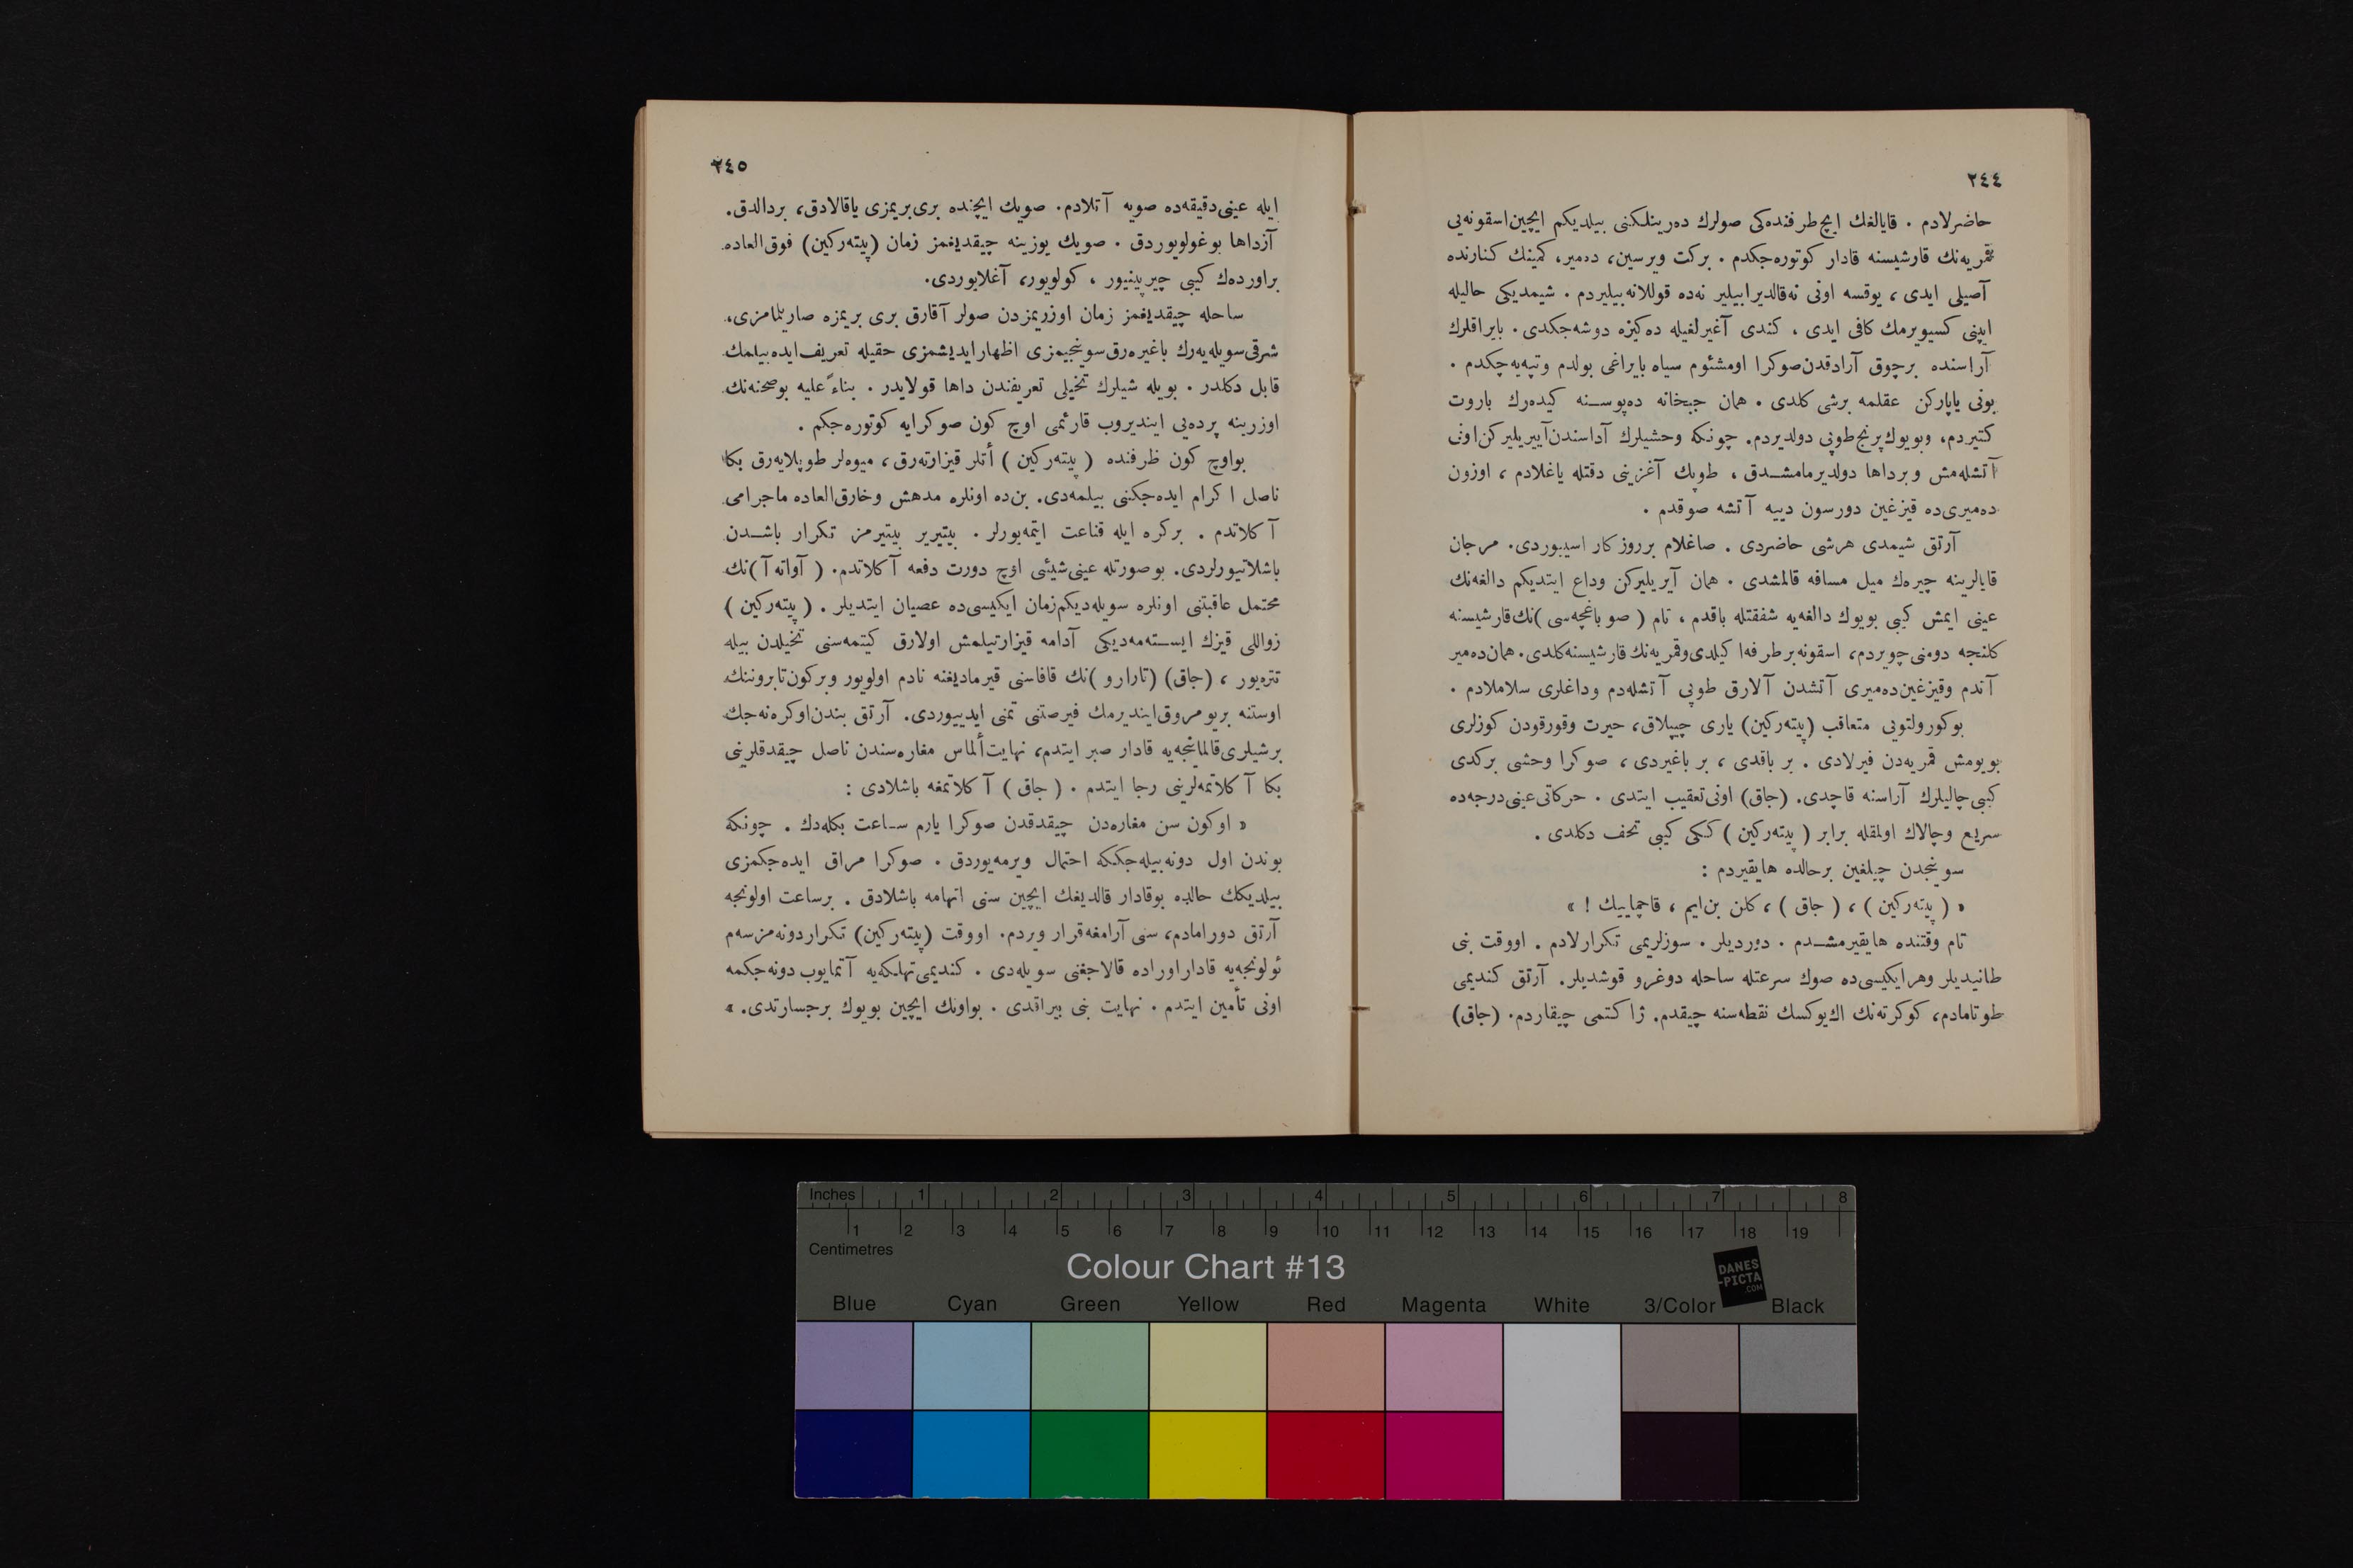 ٢٤٤
حاضرلادم . قایالغك ایچ طرفنده‌كی صولرك ده‌رینلكنی بیلدیكم ایچین اسقونه‌یی
قمریه‌نك قارشیسنه قادار كوتوره‌جكدم . بركت ویرسین، ده‌میر، كمینك كنارنده
آصیلی ایدی ، یوقسه اونی نه قالدیرابیلیر نه‌ده قوللانه‌بیلیردم . شیمدیكی حالیله
ایپنی كسیویرمك كافی ایدی ، كندی آغیرلغیله ده‌كیزه دوشه‌جكدی . بایراقلرك
آراسنده برچوق آرادقدن صوكرا اومشئوم سیاه بایراغی بولدم و تپه‌یه چكدم .
بونی یاپاركن عقلمه برشی كلدی . همان جبخانه ده‌پوسنه كیده‌رك باروت
كتیردم، وبویوك پرنج طوپی دولدیردم. چونكه وحشیلرك آداسندن آییریلیركن اونی
آتشله‌مش و برداها دولدیرمامشدق ، طوپك آغزینی دقتله یاغلادم ، اوزون
ده‌میری‌ده قیزغین دورسون دییه آتشه صوقدم .
آرتق شیمدی هرشی حاضردی . صاغلام برروزكار اسیبوردی. مرجان
قایالرینه چیره‌ك میل مسافه قالمشدی . همان آیریلیركن وداع ایتدیكم دالغه‌نك
عینی ایمش كبی بویوك دالغه‌یه شفقتله باقدم ، تام ( صو باغچه‌سی )نك قارشیسنه
كلنجه دومنی چویردم، اسقونه برطرفه‌ا كیلدی وقمریه‌نك قارشیسنه كلدی. همان ده‌میر
آتدم وقیزغین ده‌میری آتشدن آلارق طوپی آتشله‌دم وداغلری سلاملادم .
بوكورولتویی متعاقب (پیته‌ركین) یاری چیپلاق، حیرت وقورقودن كوزلری
بویومش قمریه‌دن فیرلادی . بر باقدی ، بر باغیردی ، صوكرا وحشی بركدی
كبی چالیلرك آراسنه قاچدی. (جاق) اونی تعقیب ایتدی . حركاتی عینی درجه‌ده
سریع وچالاك اولمقله برابر ( پیته‌ركین ) ككی كیبی تحف دكلدی .
سوینجدن چیلغین برحالده هایقیردم :
« ( پیته‌ركین ) ، ( جاق ) ، كلن بن‌ایم ، قاچماییك ! »
تام وقتنده هایقیرمشدم . دوردیلر . سوزلریمی تكرارلادم . اووقت بنی
طانیدیلر وهرایكیسی‌ده صوك سرعتله ساحله دوغرو قوشدیلر. آرتق كندیمی
طوتامادم، كوكرته‌نك اك یوكسك نقطه‌سنه چیقدم. ژاكتمی چیقاردم. (جاق)
٢٤٥
ایله عینی دقیقه‌ده صویه آتلادم. صویك ایچنده بری بریمزی یاقالادق، بردالدق.
آزداها بوغولویوردق . صویك یوزینه چیقدیغمز زمان (پیته‌ركین) فوق‌العاده
براورده‌ك كیبی چیرپینیور ، كولویور، آغلایوردی.
ساحله چیقدیغمز زمان اوزریمزدن صولر آقارق بری بریمزه صاریلمامزی،
شرقی سویله‌یه‌رك باغیره‌رق سوینجیمزی اظهار ایدیشمزی حقیله تعریف ایده‌بیلمك
قابل دكلدر . بویله شیلرك تخیلی تعریفندن داها قولایدر . بناءً علیه بوصحنه‌نك
اوزرینه پرده‌یی ایندیروب قارئمی اوچ كون صوكرایه كوتوره‌جكم .
بواوچ كون ظرفنده ( پیته‌ركین ) أتلر قیزارته‌رق ، میوه‌لر طوپلایه‌رق بكا
ناصل اكرام ایده‌جكنی بیلمه‌دی. بن‌ده اونلره مدهش وخارق‌العاده ماجرامی
آكلاتدم . بركره ایله قناعت ایتمه‌یورلر . بیتیریر بیتیرمز تكرار باشدن
باشلاتیورلردی. بوصورتله عینی شیئی اوچ دورت دفعه آكلاتدم. ( آواته آ )نك
محتمل عاقبتنی اونلره سویله‌دیكم زمان ایكیسی‌ده عصیان ایتدیلر . ( پیته‌ركین )
زواللی قیزك ایسته‌مه‌دیكی آدامه قیزارتیلمش اولارق كیتمه‌سنی تخیلدن بیله
تتره‌یور ، (جاق) (تارارو )نك قافاسنی قیرمادیغنه نادم اولویور وبركون تابروننك
اوستنه بریومروق ایندیرمك فیرصتنی تمنی ایدییوردی. آرتق بندن اوكره‌نه‌جك
برشیلری قالماینجه‌یه قادار صبر ایتدم، نهایت ألماس مغاره‌سندن ناصل چیقدقلرینی
بكا آكلاتمه‌لرینی رجا ایتدم . ( جاق ) آكلاتمغه باشلادی :
« اوكون سن مغاره‌دن چیقدقدن صوكرا یارم ساعت بكله‌دك . چونكه
بوندن اول دونه‌بیله‌جككه احتمال ویرمه‌یوردق . صوكرا مراق ایده‌جكمزی
بیلدیكك حالده بوقادار قالدیغك ایچین سنی اتهامه باشلادق . برساعت اولونجه
آرتق دورامادم، سنی آرامغه قرار ویردم. اووقت (پیته‌ركین) تكرار دونه‌مزسه‌م
ئولونجه‌یه قادار اوراده قالاجغنی سویله‌دی . كندیمی تهلكه‌یه آتمایوب دونه‌جكمه
اونی تأمین ایتدم . نهایت بنی بیراقدی . بواونك ایچین بویوك برجسارتدی. »
Inches 1 2 3 4 5 6 7 8
1 2 3 4 5 6 7 8 9 10 11 12 13 14 15 16 17 18 19
Centimetres
Colour Chart #13
DANES
-PICTA
.COM
Blue Cyan Green Yellow Red Magenta White 3/Color Black